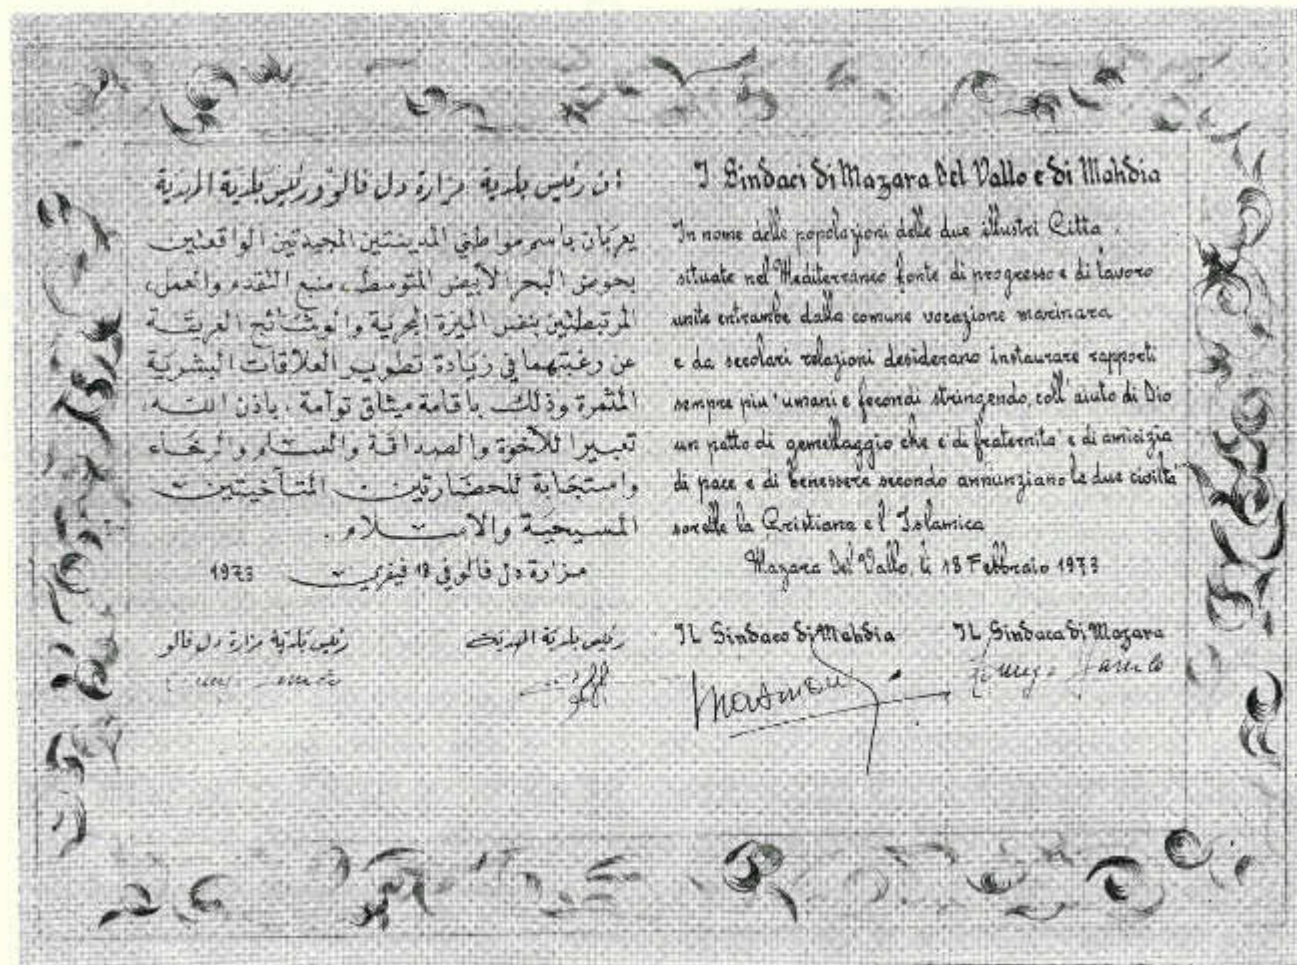 ان رئيس بلدية مزارة دل فالو ورئيس بلدية المهدية
يعربان باسم مواطني المدينتين المجيدتين الواقعتين
بحوض البحر الأبيض المتوسط، منبع التقدم والعمل،
المرتبطتين بنفس الميزة البحرية والوشائج العريقة
عن رغبتهما في زيادة تطوير العلاقات البشرية
المثمرة وذلك باقامة ميثاق توأمة، باذن الله
تعبيرا للأخوة والصداقة والسلم والرخاء
واستجابة للحضارتين المتآخيتين
المسيحية والاسلام.
مزارة دل فالو في 18 فيفري 1973
رئيس بلدية المهدية
رئيس بلدية مزارة دل فالو
I Sindaci di Mazara Del Vallo e di Mahdia
In nome delle popolazioni delle due illustri Citta
situate nel Mediterraneo fonte di progresso e di lavoro
unite entrambe dalla comune vocazione marinara
e da secolari relazioni desiderano instaurare rapporti
sempre piu' umani e fecondi stringendo, coll' aiuto di Dio
un patto di gemellaggio che e' di fraternita' e di amicizia
di pace e di benessere secondo annunziano le due civiltà
sorelle la Cristiana e l' Islamica
Mazara Del Vallo, li 18 Febbraio 1973
IL Sindaco di Mahdia
IL Sindaco di Mazara